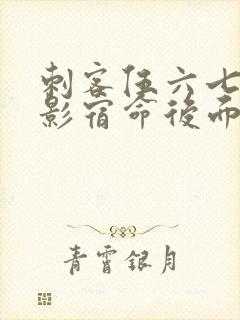 刺客伍六七
影宿命後而
青霄銀月